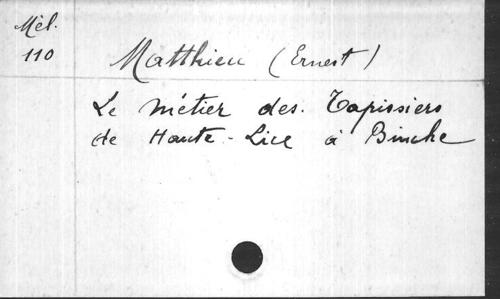 Mél.
110
Matthieu (Ernest)
Le Métier des Tapissiers
de Haute-Lice à Binche